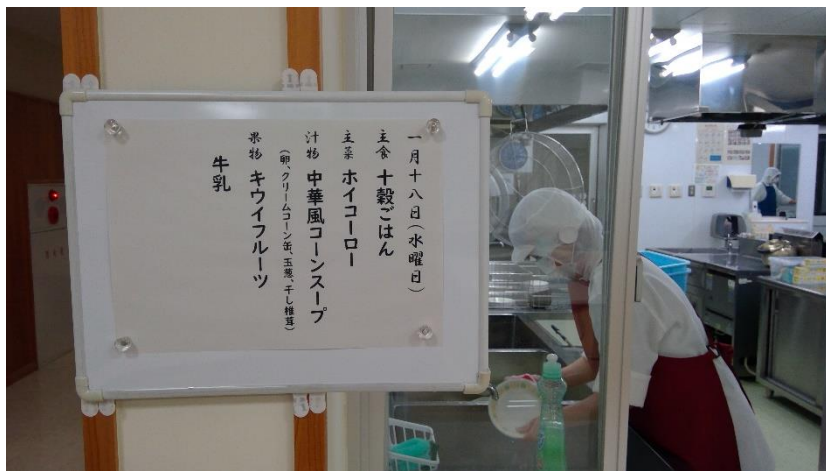 一月十八日(水曜日)
主食 十穀ごはん
主菜 ホイコーロー
汁物 中華風コーンスープ
(卵、クリームコーン缶、玉葱、干し椎茸)
果物 キウイフルーツ
牛乳